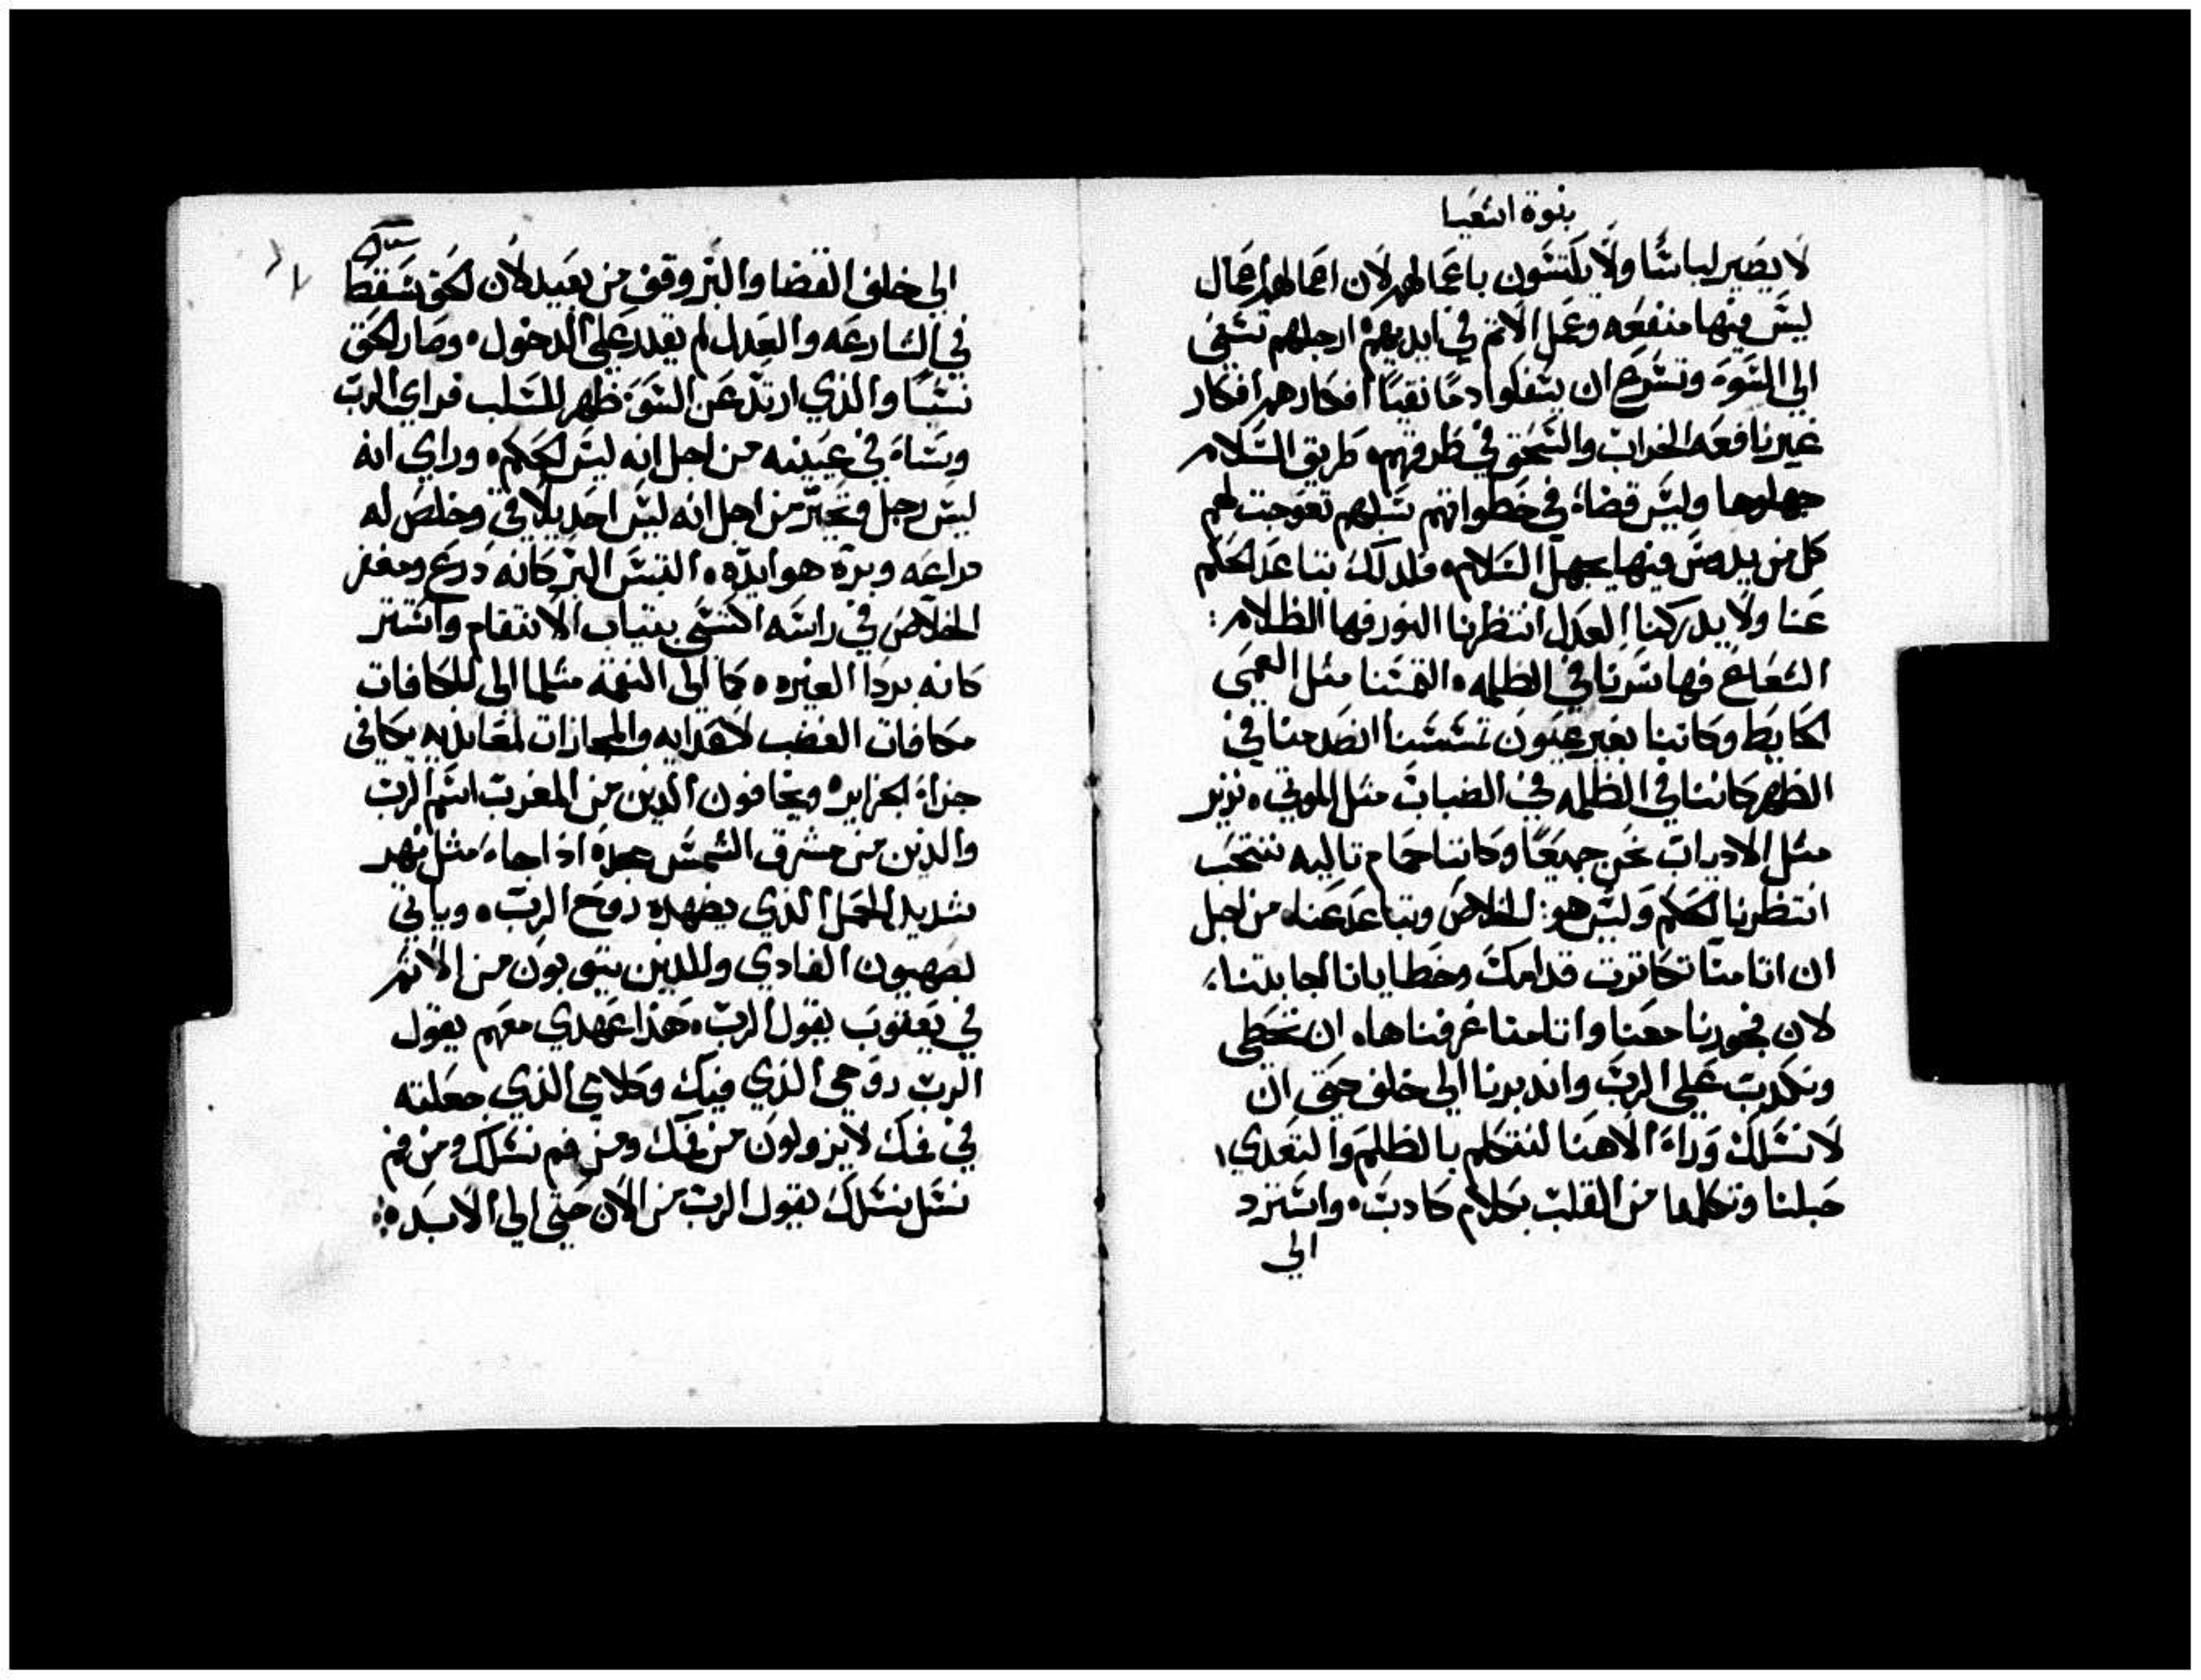 بنوة اشعيا
لا يصير لباسًا ولا يكتسون باعمالهم لان اعمالهم اعمال
ليس فيها منفعه وعمل الاثم في ايديهم ارجلهم تسعى
الي السوء وتسرع ان يسفكوا دمًا نقيًا افكارهم افكار
غير نافعه الخراب والسحق في طرقهم طريق السلام
جهلوها وليس قضاء في خطواتهم سبلهم تعوجت لهم
كل من يدوس فيها يجهل السلام فلدلك تباعد الحكم
عنا ولا يدركنا العدل انتظرنا النور فها الظلام :
الشعاع فها سرنا في الظلمه التمسنا مثل العمى
الحايط وكاننا بغير عيون تمسسنا انصدمنا في
الظهر كاننا في الظلمه في الضباب مثل الموتى نزير
مثل الادباب نحن جميعًا وكاننا حمام تاليه ننتحب
انتظرنا الحكم وليس هو الخلاص وتباعد عنا من اجل
ان اتامنا تكاترت قدامك وخطايانا اجابتنا
لان فجورنا معنا واتامنا عرفناها ان نخطي
ونكدب على الرب واندبرنا الي خلف حتى ان
لا نسلك وراء الاهنا لنتكلم بالظلم والتعدي
حبلنا وتكلمنا من القلب بكلام كادب واسترد
الي
الي خلف القضا والبر وقف من بعيد لان الحق سقط
في الشارعه والعدل لم يقدر على الدخول وصار الحق
نسيًا والذي ارتد عن السوء ظهر للسلب فراي الرب
وساء في عينيه من اجل انه ليس الحكم وراي انه
ليس رجل وتحير من اجل انه ليس احد يلاقي وخلص له
دراعه وبره هو ايده التبس البر كانه درع ومغفر
الخلاص في راسه اكتسى بتياب الانتقام واستتر
كانه بردا الغيره كما الى النقمه مثلما الى للكافات
مكافات الغضب لاهدايه والمجازات لمعانديه يكافي
جزاء الجزاير ويخافون الدين من المغرب اسم الرب
والدين من مشرق الشمس مجده اذا جاء مثل نهر
شديد المحمل الذي يضهده روح الرب وياتي
لصهيون الفادي وللدين يتوبون من الاثم
في يعقوب يقول الرب هذا عهدي معهم يقول
الرب روحي الذي فيك وكلامي الذي جعلته
في فمك لا يزولون من فمك ومن فم نسلك ومن فم
نسل نسلك يقول الرب من الان حتى الي الابد